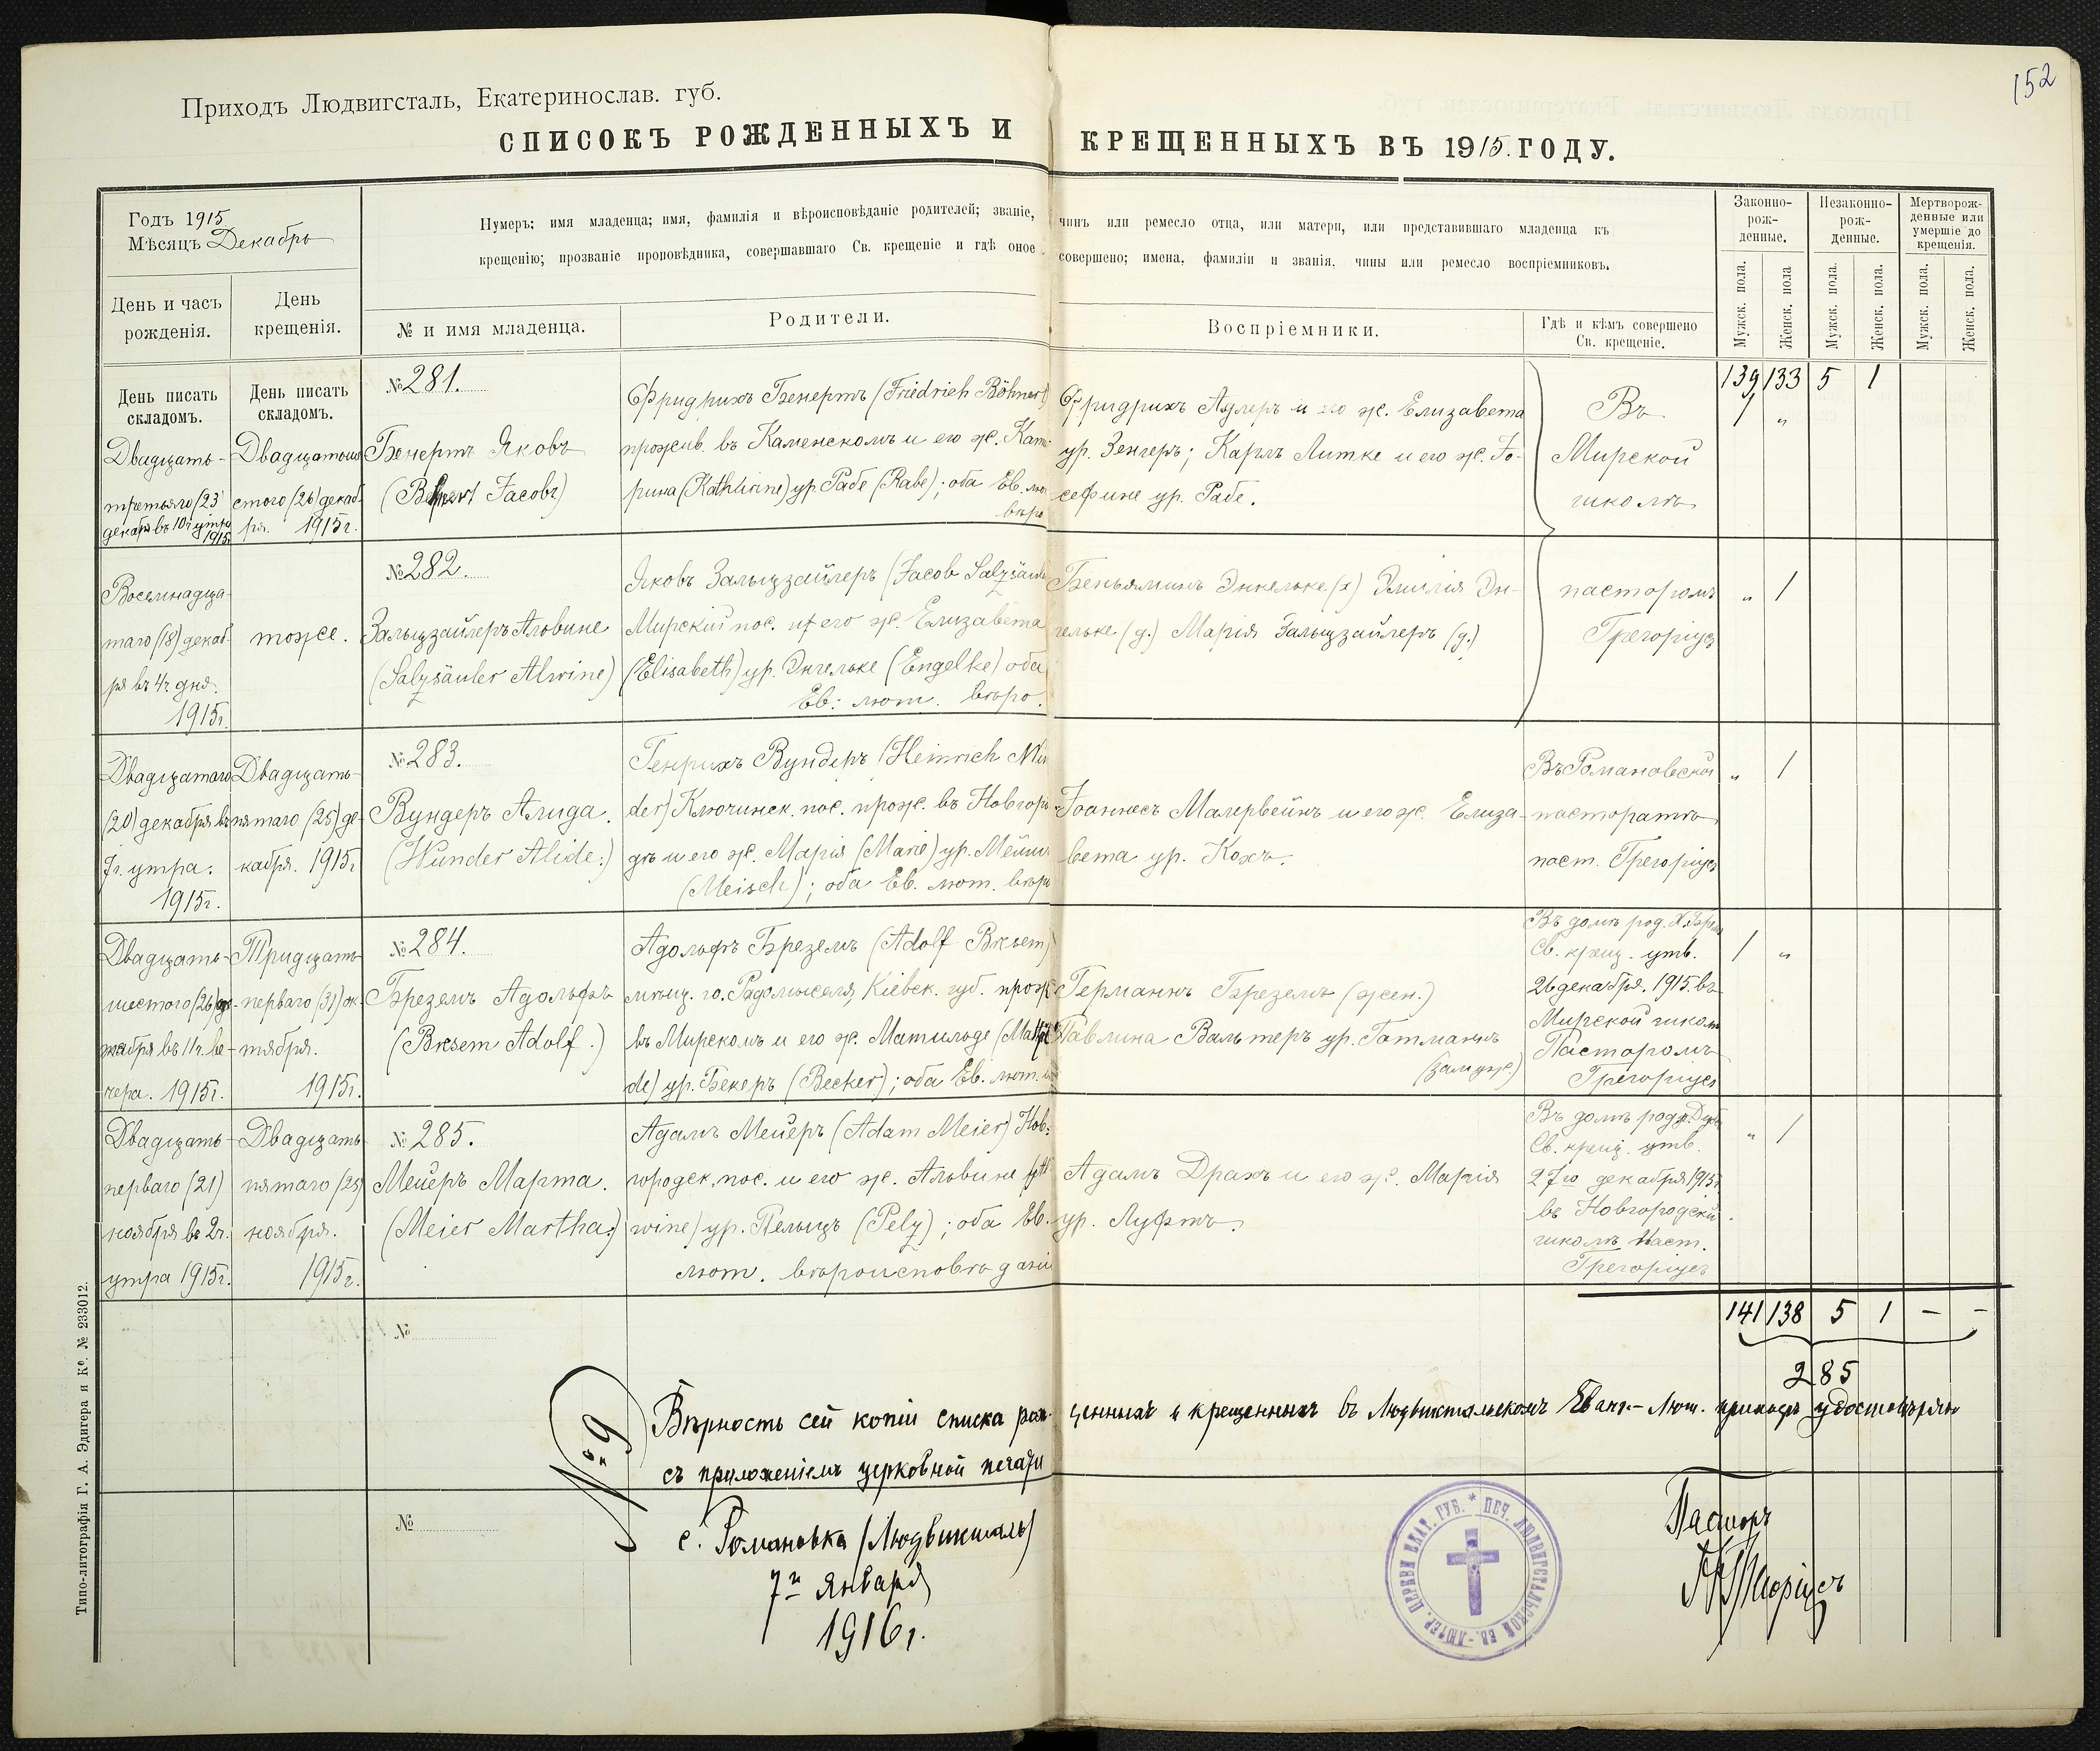 152
Приходъ Людвигсталь, Екатеринослав. губ.
СПИСОКЪ РОЖДЕННЫХЪ И КРЕЩЕННЫХЪ ВЪ 1915. ГОДУ.
Годъ 1915
Мѣсяцъ Декабрь
Нумеръ; имя младенца; имя, фамилія и вѣроисповѣданіе родителей; званіе, чинъ или ремесло отца, или матери, или представившаго младенца къ
крещенію; прозваніе проповѣдника, совершавшаго Св. крещеніе и гдѣ оное совершено; имена, фамиліи и званія, чины или ремесло воспріемниковъ.
Законно-
рож-
денные.
Незаконно-
рож-
денные.
Мертворож-
денные или
умершіе до
крещенія.
День и часъ
рожденія.
День
крещенія.
№ и имя младенца.
Родители.
Воспріемники.
Гдѣ и кѣмъ совершено
Св. крещеніе.
Мужск. пола.
Женск. пола
Мужск. пола.
Женск. пола.
Мужск. пола.
Женск. пола.
День писать
складомъ.
День писать
складомъ.
139 133 5 1
Двадцать-
третьяго (23
декабр въ 10ч утра
1915
Двадцатьше
стого (26) декаб
ря. 1915г.
№ 281.
Бенертъ Яковъ
Jacob)
Фридрихъ Бенертъ (Friedrich Böhnert)
прожив. въ Каменскомъ и его ж. Кате
рина (Kathirine) ур. Рабе (Rabe); оба Ев. лют
вѣро
Фридрихъ Адлеръ и его ж. Елизавета
ур. Зенгеръ; Карлъ Литке и его ж. Јо-
сефине ур. Рабе.
Въ
Мирской
школѣ
1 „
Восемнадца-
таго (18) декаб
ря въ 4ч дня.
1915г.
тоже.
№ 282.
Зальцзайлеръ Альвине
(Salzsäuler Alwine)
Яковъ Зальцзайлеръ (Jacob Salzsäule
Мирской пос. и его ж. Елизавета
(Elisabeth) ур. Энгельке (Engelke) оба
Ев: лют. вѣро.
Беньяминъ Энкельке (х) Эмилія Эн-
гельке (д.) Марія Зальцзайлеръ (д.)
пасторомъ
Грегоріус
„ 1
Двадцатаго
(20) декабря въ
7г. утра.
1915г.
Двадцать-
пятаго (25) де-
кабря. 1915г
№ 283.
Вундеръ Алида.
(Wunder Alide.)
Генрихъ Вундеръ (Heinrich Wun
der) Ключинск. пос. прож. въ Новгоро
дѣ и его ж. Марія (Marie) ур. Мейш
(Meisch); оба Ев. лют. вѣро
Іоаннесъ Малервейнъ и его ж. Елиза-
вета ур. Кохъ.
Въ Романовской
пасторатѣ
паст. Грегоріус
„ 1
Двадцать-
шестого (26)
тября въ 11ч. ве-
чера. 1915г.
Тридцать
перваго (31) ок
тября.
1915г.
№ 284.
Бреземъ Адольфъ
(Bresem Adolf.)
Адольфъ Бреземъ (Adolf Bresem)
мѣщ. го. Радомысля, Кіевск. губ. прож
въ Мирскомъ и его ж. Матильде (Mathil
de) ур. Бекеръ (Becker); оба Ев. лют.
Германнъ Бреземъ (жен.)
Павлина Вальтеръ ур. Гатманнъ
(замуж.)
Въ домѣ род.
Св. крещ. утв.
26 декабря. 1915. въ
Мирской школѣ
Пасторомъ
Грегоріус
1 „
Двадцать-
перваго (21)
ноября въ 2ч.
утра 1915г.
Двадцать
пятаго (25)
ноября.
1915г.
№ 285.
Мейеръ Марта.
(Meier Martha.)
Адамъ Мейеръ (Adam Meier) Нов-
городск. пос. и его ж. Альвине (Al
wine) ур. Пельцъ (Pelz); оба Ев.
лют. вѣроисповѣданія
Адамъ Драхъ и его ж. Марія
ур. Луфтъ.
Въ домѣ род.
Св. крещ. утв.
27го декабря 1915г.
въ Новгородской
школѣ Паст.
Грегоріус
„ 1
141 138 5 1 – –
285
№
№9
Вѣрность сей копіи списка рожденныхъ и крещенныхъ въ Людвигстальскомъ Еванг.-Лют. приходѣ удостовѣряю
съ приложеніемъ церковной печати
№
с. Романовка (Людвигсталь)
7го Января
1916г.
ПЕЧ. ЛЮДВИГСТАЛЬСКОЙ ЕВ.-ЛЮТЕР. ЦЕРКВИ ЕКАТ. ГУБ. *
Пасторъ
Типо-литографія Г. А. Эдигера и Ко. № 233012.